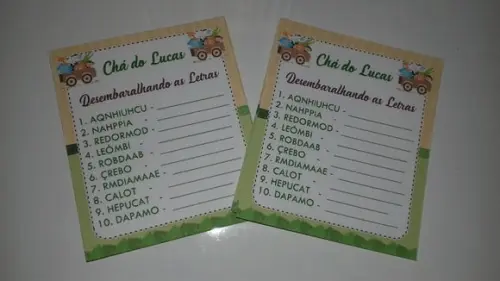 Chá do Lucas
Desembaralhando as Letras
1. AQNHIUHCU -
2. NAHPPIA -
3. REDORMOD -
4. LEÔMBI -
5. ROBDAAB -
6. ÇREBO -
7. RMDIAMAAE -
8. CALOT -
9. HEPUCAT -
10. DAPAMO -
Chá do Lucas
Desembaralhando as Letras
1. AQNHIUHCU -
2. NAHPPIA -
3. REDORMOD -
4. LEÔMBI -
5. ROBDAAB -
6. ÇREBO -
7. RMDIAMAAE -
8. CALOT -
9. HEPUCAT -
10. DAPAMO -